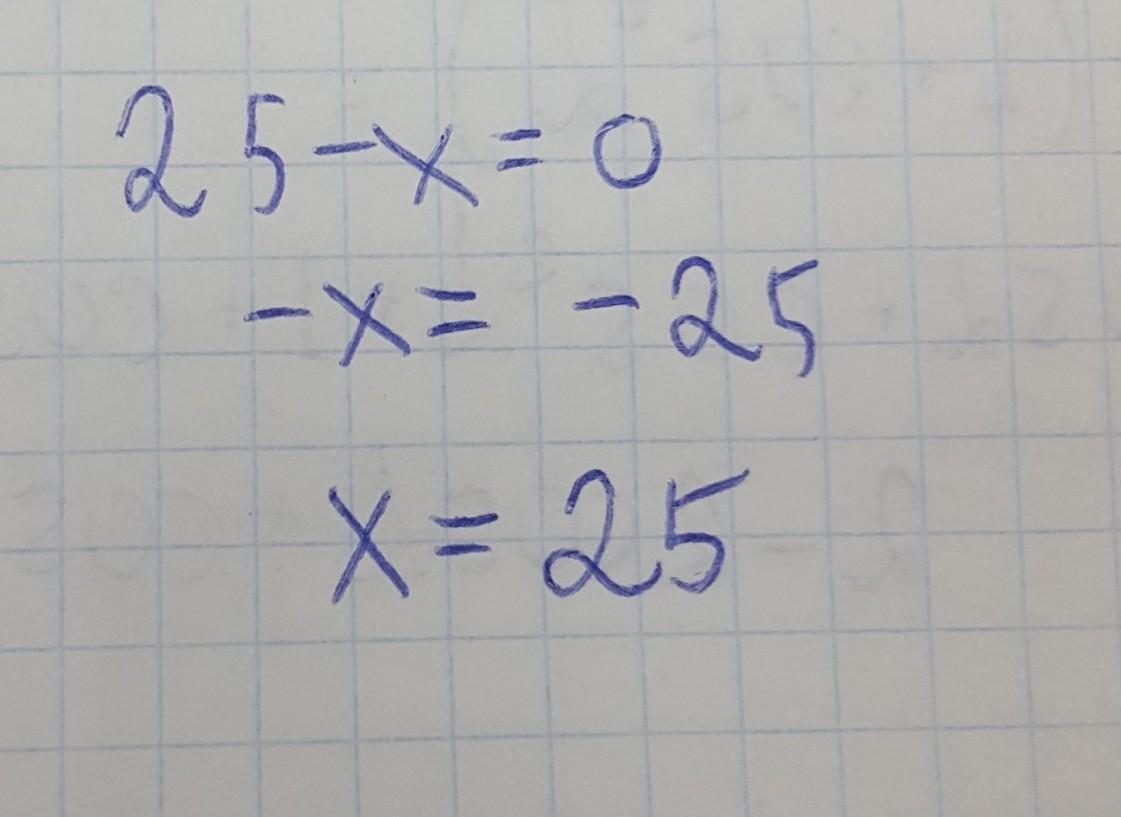 25-x=0
-x= -25
x=25